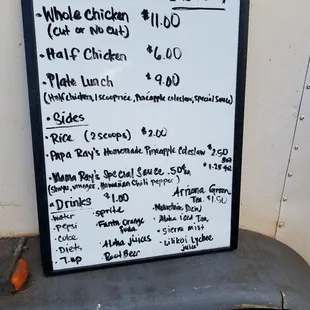 • Whole Chicken $11.00
(Cut or No Cut)
• Half Chicken $6.00
• Plate Lunch $9.00
(Half chicken, 1 scoop rice, Pineapple coleslaw, special Sauce)
• Sides
• Rice (2 scoops) $2.00
• Papa Ray's Homemade Pineapple Coleslaw $2.50
• Mama Ray's Special Sauce .50
(Shoyu, vinegar, Hawaiian Chili pepper)
• Drinks $1.00
Arizona Green
Tea $1.50
• Water
• Pepsi
• Coke
• Diets
• 7-up
• Sprite
• Fanta Orange
Soda
• Aloha juices
• Root Beer
• Mountain Dew
• Aloha iced Tea
• Sierra mist
• Lilikoi Lychee
Juice